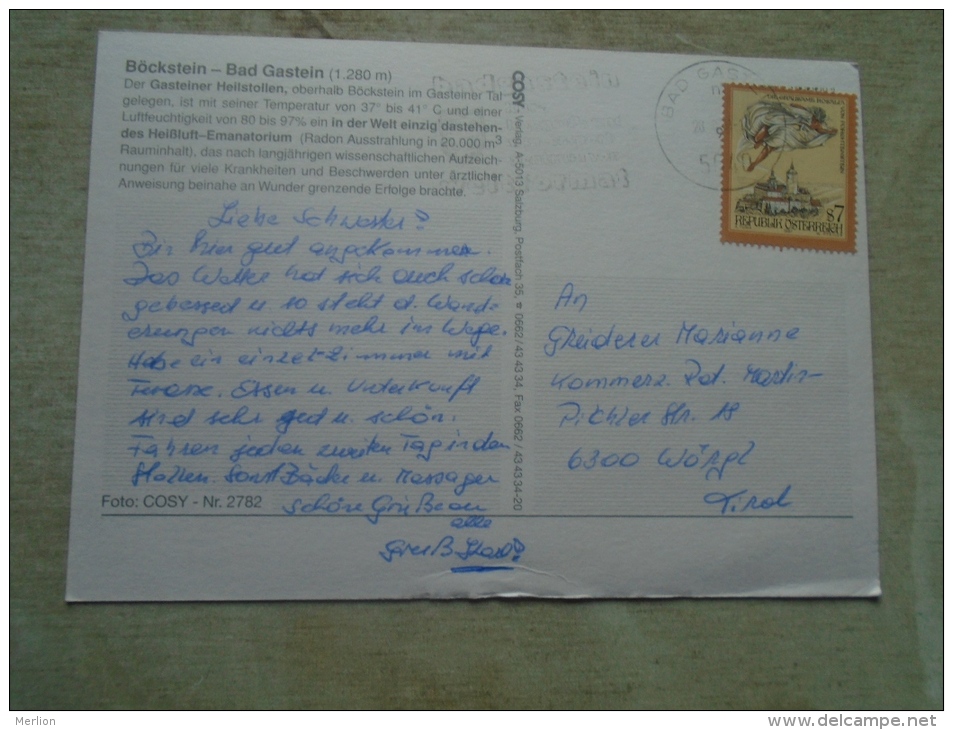 Böckstein – Bad Gastein (1.280 m)
Der Gasteiner Heilstollen, oberhalb Böckstein im Gasteiner Tal
gelegen, ist mit seiner Temperatur von 37° bis 41° C und einer
Luftfeuchtigkeit von 80 bis 97% ein in der Welt einzig dastehen-
des Heißluft–Emanatorium (Radon Ausstrahlung in 20.000 m³
Rauminhalt), das nach langjährigen wissenschaftlichen Aufzeich-
nungen für viele Krankheiten und Beschwerden unter ärztlicher
Anweisung beinahe an Wunder grenzende Erfolge brachte.
Liebe Schwester!
Bin hier gut angekommen.
Das Wetter hat sich auch schon
gebessert u so steht d. Wand-
erungen nichts mehr im Wege.
Habe ein einzelzimmer mit
Terasse. Essen u. Unterkunft
sind sehr gut u. schön.
Fahren jeden zweiten Tag in den
Stollen. Sonst Bäder u. Massagen
schöne Grüße an
alle
Gruß
Foto: COSY - Nr. 2782
COSY - Verlag, A-5013 Salzburg, Postfach 35, ☎ 0662/43 43 34, Fax 0662/43 43 34-20
BAD GAST
REPUBLIK ÖSTERREICH
S7
An
Greiderer Marianne
Kommerz. Rat. Martin-
Pichler Str. 18
6300 Wörgl
Tirol
Merlion
www.delcampe.net